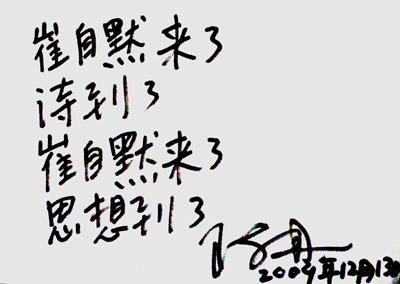 崔自默来了
诗到了
崔自默来了
思想到了
2009年12月13日